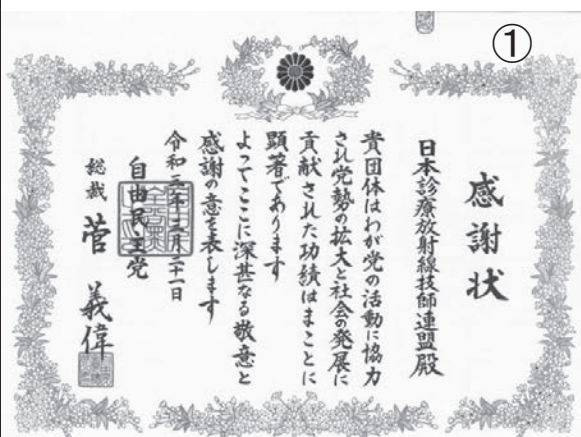 ①
感謝状
日本診療放射線技師連盟殿
貴団体はわが党の活動に協力
され党勢の拡大と社会の発展に
貢献された功績はまことに
顕著であります
よってここに深甚なる敬意と
感謝の意を表します
令和三年三月二十一日
自由民主党
総裁 菅 義偉